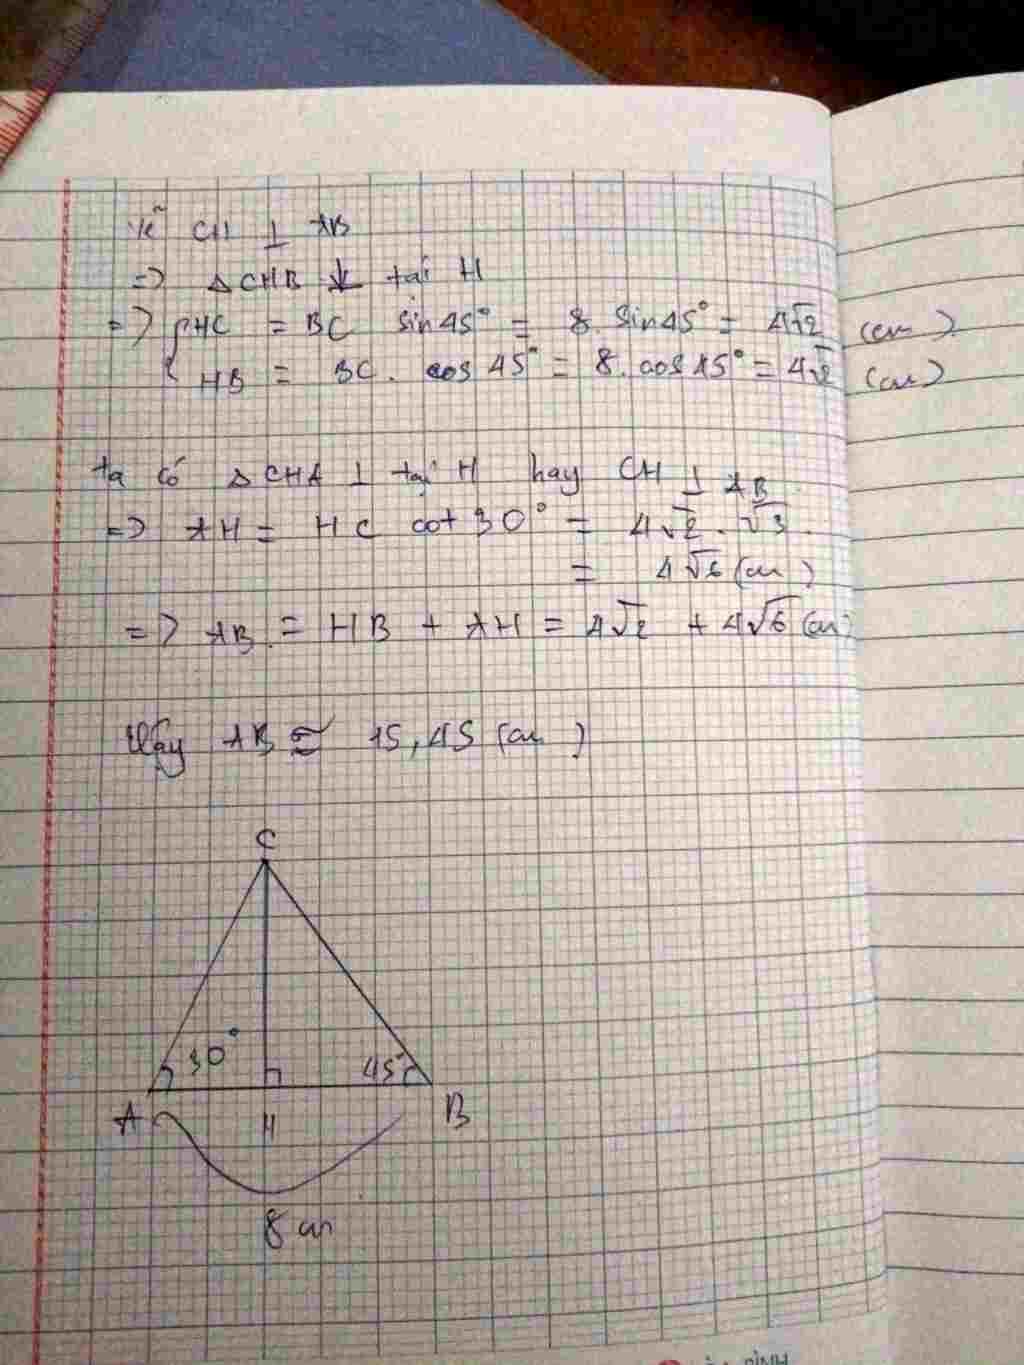 kẻ CH ⊥ AB
=> △CHB ⊥ tại H
=> { HC = BC sin45° = 8. sin45° = 4√2 (cm)
HB = BC. cos 45° = 8. cos 45° = 4√2 (cm)
ta có △CHA ⊥ tại H hay CH ⊥ AB
=> AH = HC cot 30° = 4√2 . √3.
= 4√6 (cm)
=> AB = HB + AH = 4√2 + 4√6 (cm)
Vậy AB ≈ 15,45 (cm)
C
30° 45°
A H B
8 cm